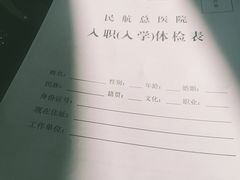 民航总医院
入职(入学)体检表
姓名: 性别: 年龄: 婚姻:
民族: 籍贯: 文化: 职业:
身份证号:
现在住址:
工作单位: